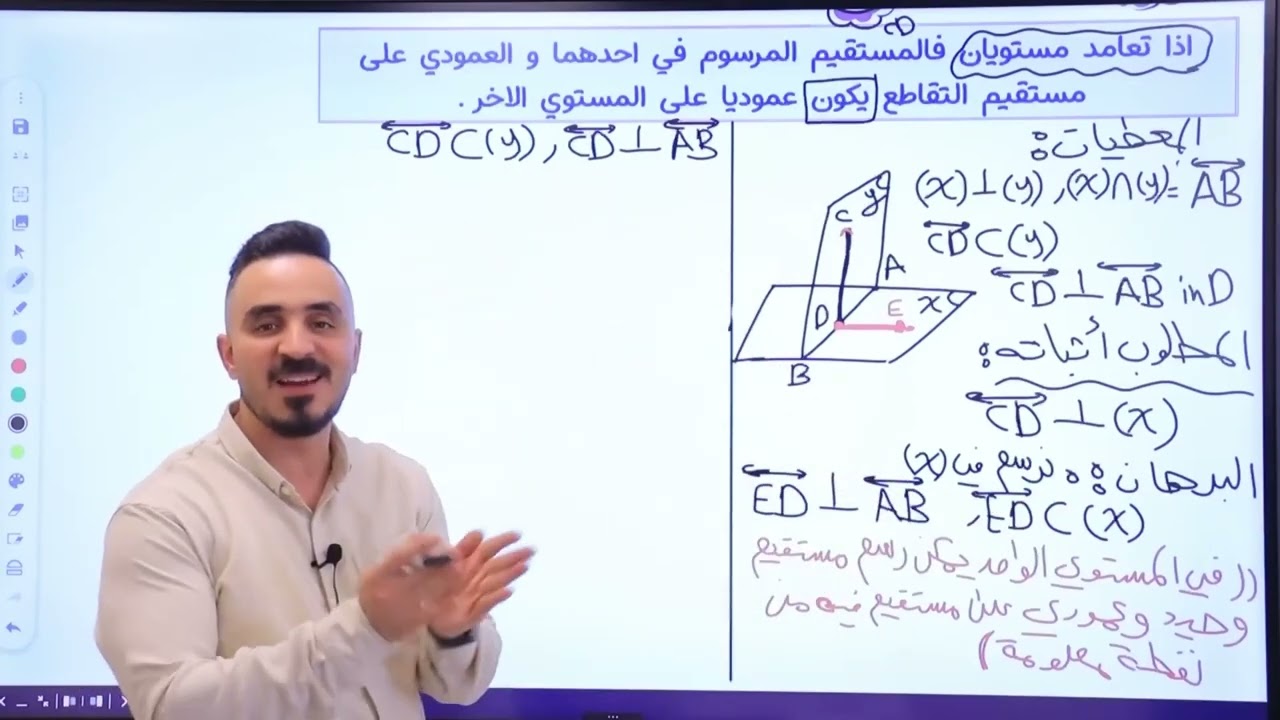 CD
اذا تعامد مستويان فالمستقيم المرسوم في احدهما و العمودي على
مستقيم التقاطع يكون عموديا على المستوي الاخر .
المعطيات:
(x)⊥(y) , (x)∩(y)= AB
CD ⊂ (y)
CD ⊥ AB in D
المطلوب أثباته:
CD ⊥ (x)
البرهان: نرسم في (x)
ED ⊥ AB , ED ⊂ (x)
((في المستوي الواحد يمكن رسم مستقيم
وحيد وعمودي على مستقيم فيه من
نقطة معلومة)
y
C
A
D
E
x
B
CD ⊂ (y) , CD ⊥ AB